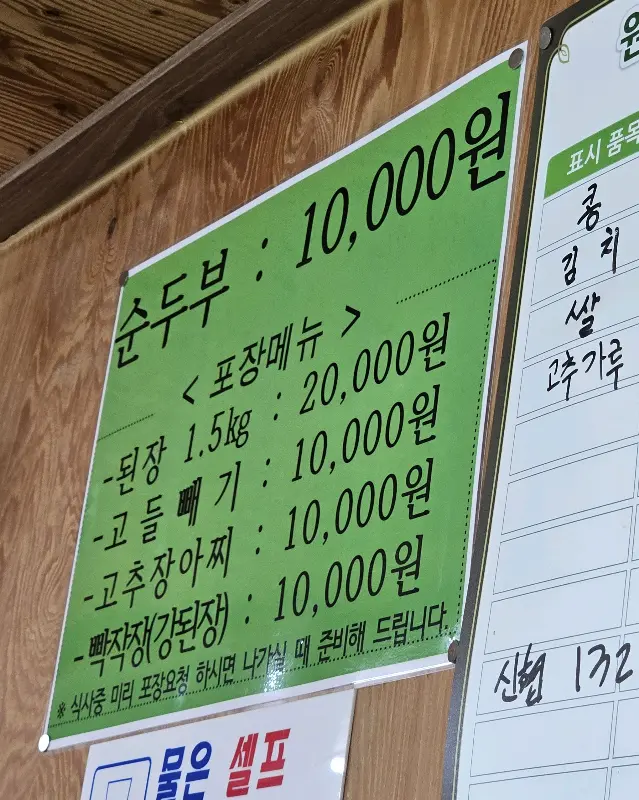 순두부 : 10,000원
< 포장메뉴 >
-된장 1.5kg : 20,000원
-고들빼기 : 10,000원
-고추장아찌 : 10,000원
-빡작장(강된장) : 10,000원
※ 식사중 미리 포장요청 하시면 나가실 때 준비해 드립니다.
물은 셀프
원
표시 품목
콩
김치
쌀
고추가루
신협 132